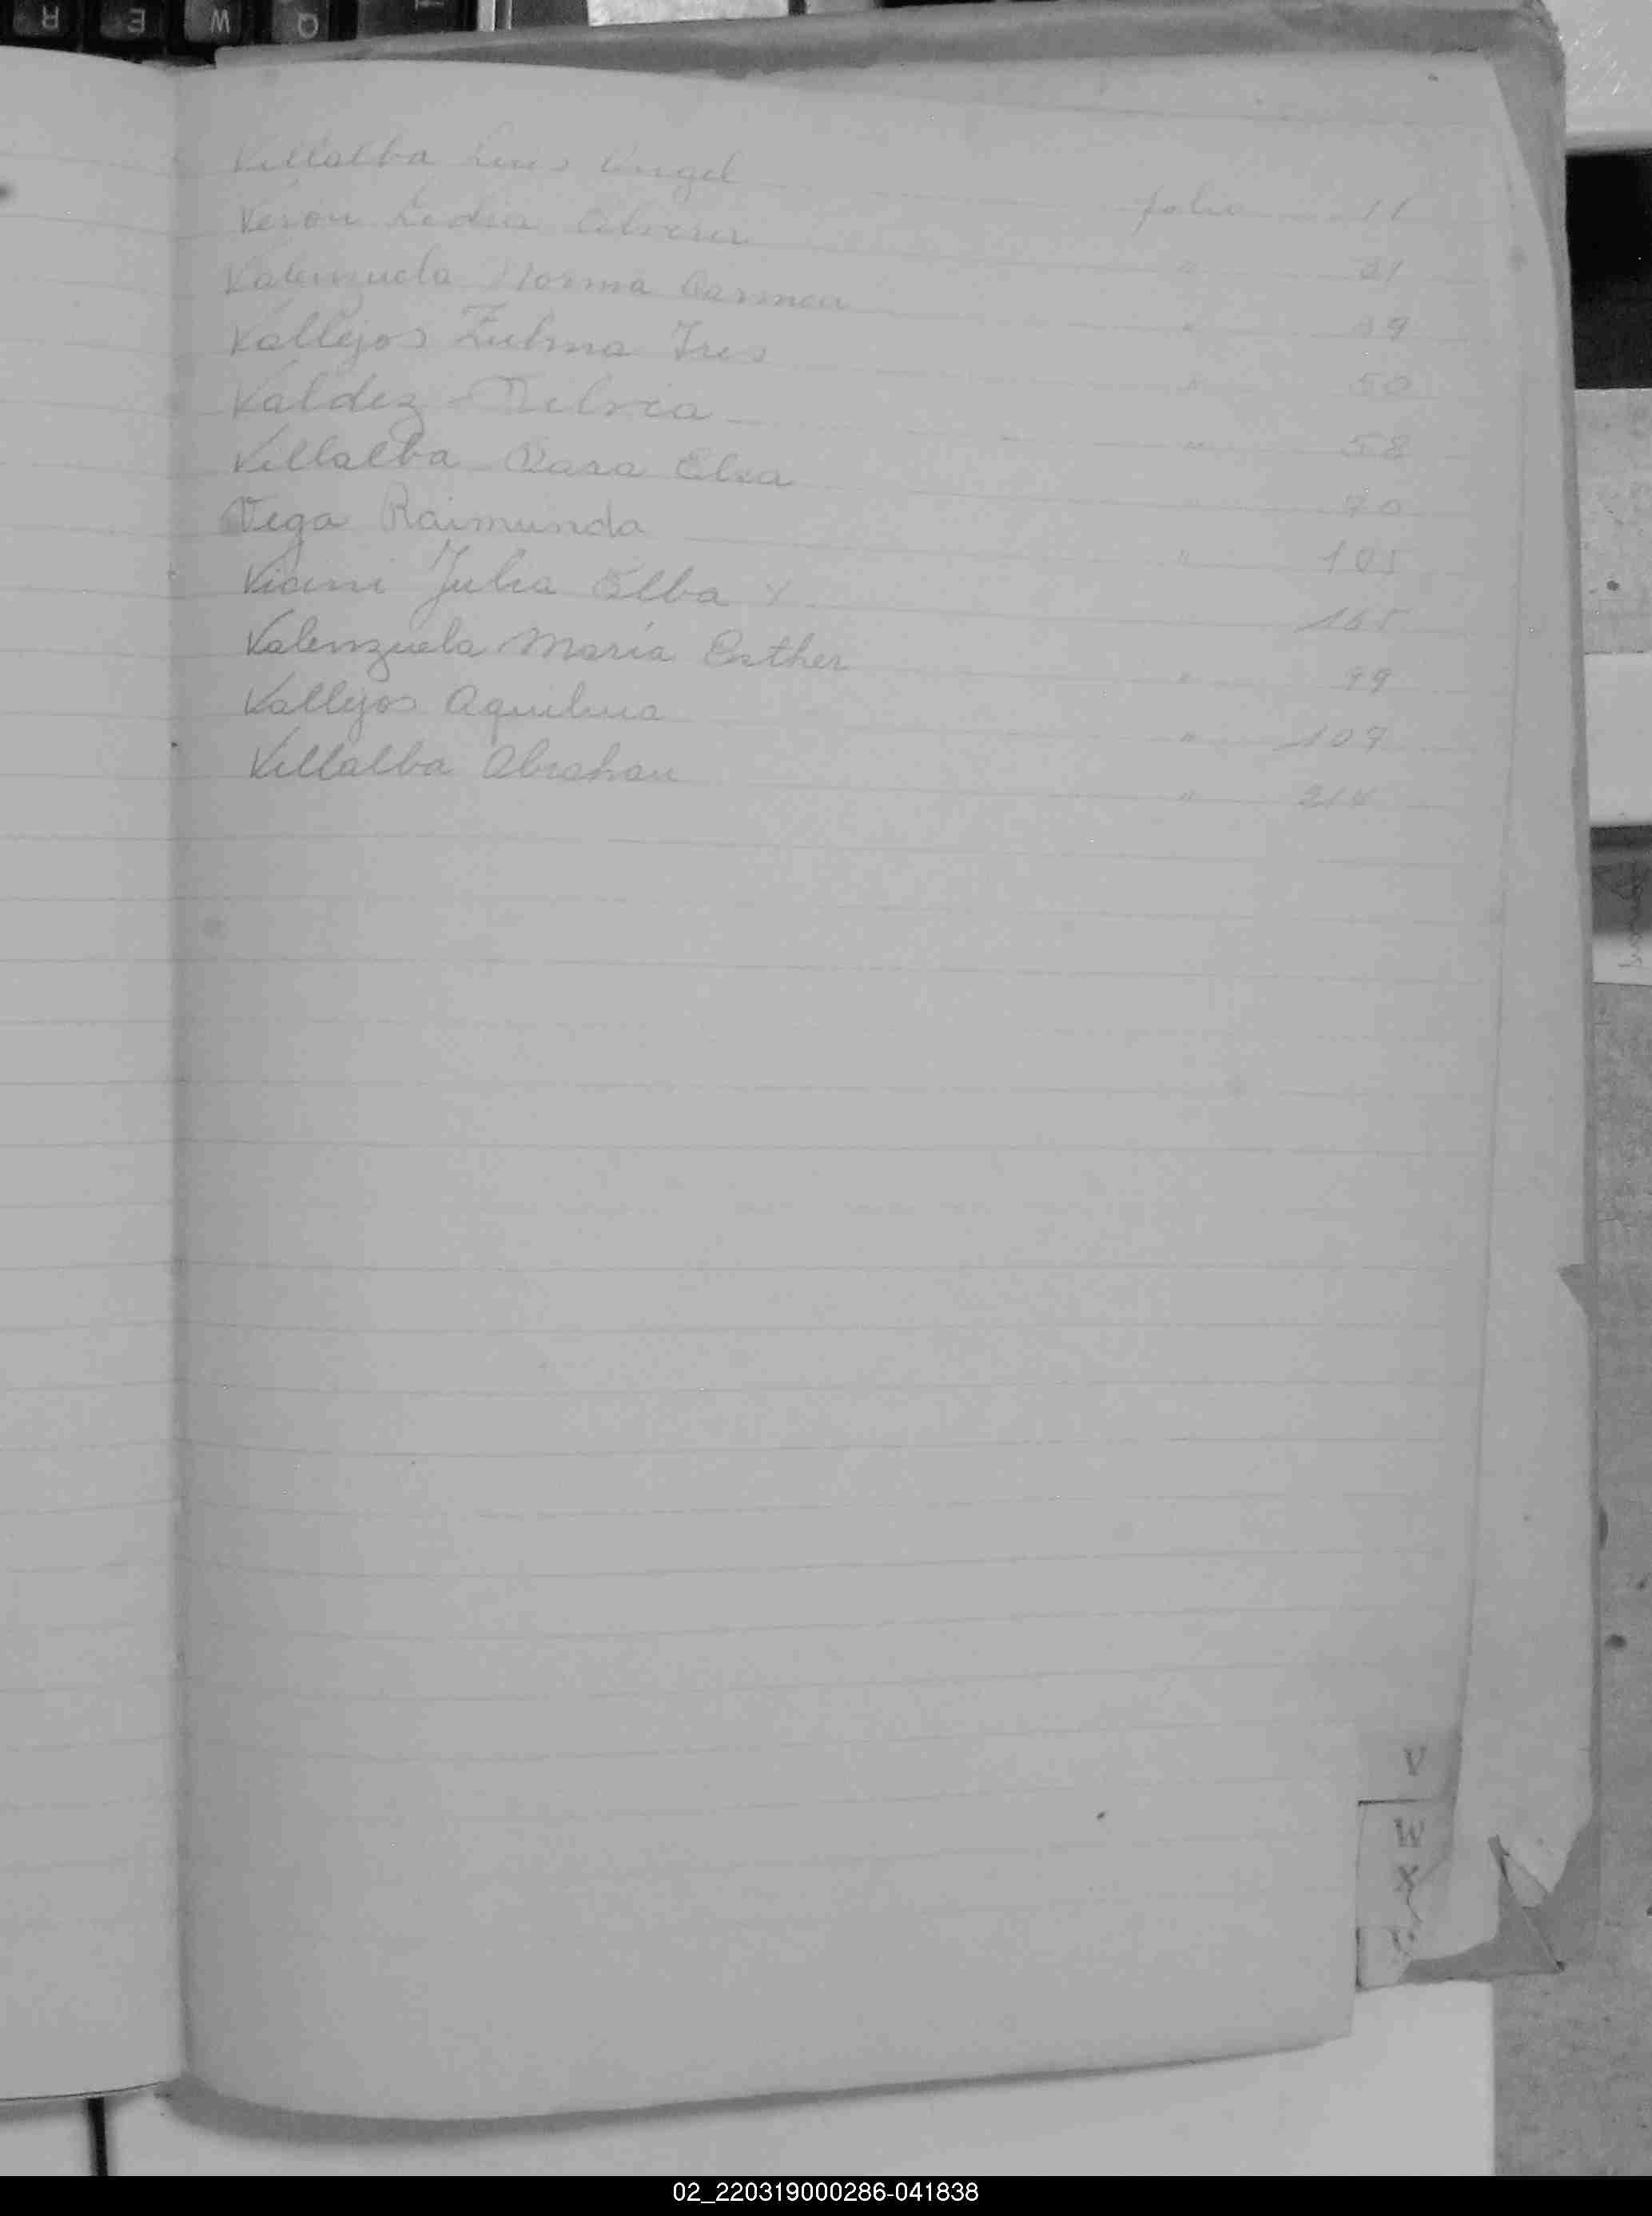 Villalba Luis Angel folio 11
Verón Lidia 21
Valenzuela Norma Carmen " 39
Vallejos Zulma Ires " 50
Valdez Nelvia " 58
Villalba Rasa Elsa " 70
Vega Raimunda " 105
Viani Julia Elba x 165
Valenzuela María Esther " 99
Vallejos Aquilina " 109
Villalba Abrahan " 214
V
W
X
02_220319000286-041838